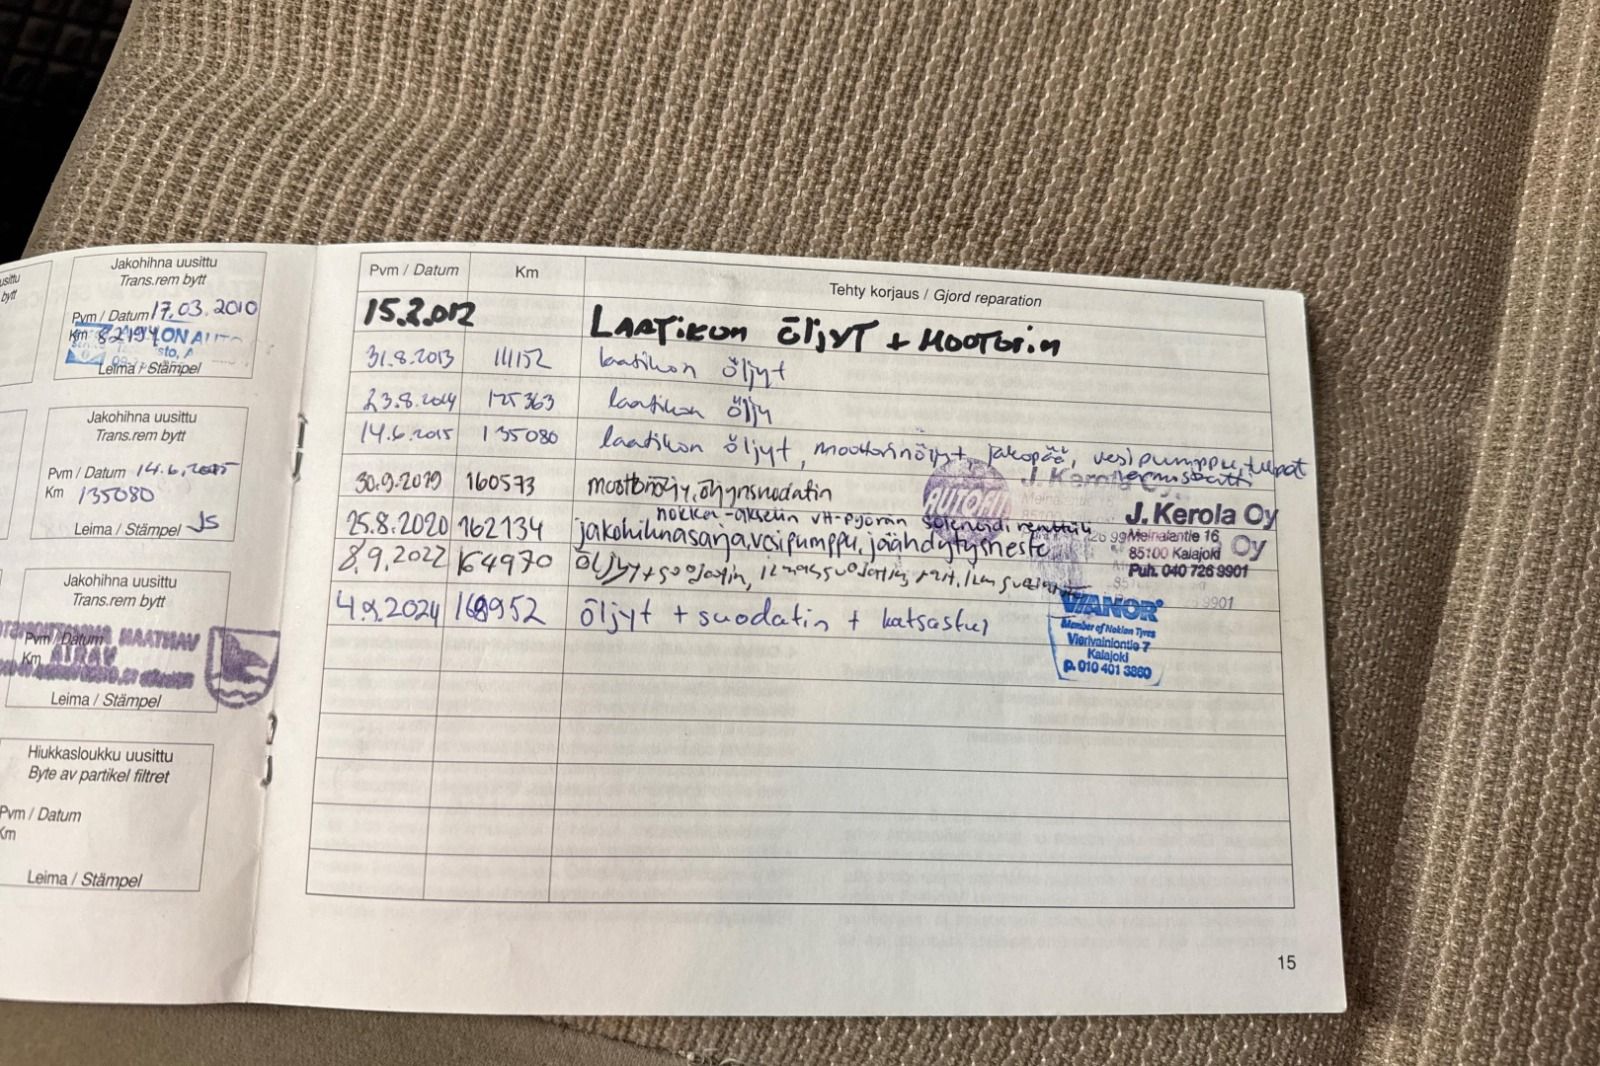 Jakohihna uusittu
Trans.rem bytt
Pvm / Datum 17.03.2010
Km 82194
Leima / Stämpel
Jakohihna uusittu
Trans.rem bytt
Pvm / Datum 14.6.2015
Km 135080
Leima / Stämpel JS
Jakohihna uusittu
Trans.rem bytt
Pvm / Datum
Km
Leima / Stämpel
Hiukkasloukku uusittu
Byte av partikel filtret
Pvm / Datum
Km
Leima / Stämpel
Pvm / Datum Km Tehty korjaus / Gjord reparation
15.2.012 LAATIKON ÖLJYT + MOOTORIN
31.8.2013 111152 laatikon öljyt
23.8.2014 125363 laatikon öljy
14.6.2015 135080 laatikon öljyt, moottorinöljyt jakopää, vesipumppu, tulpat
termostaatti
30.9.2019 160573 moottoriöljy, öljynsuodatin
AUTOFIT
nokka-akselin VH-pyörän solenoidi venttiili
25.8.2020 162134 jakohihnasarja, vesipumppu, jäähdytysneste
J. Kerola Oy
Meinalantie 16
85100 Kalajoki
Puh. 040 726 9901
8.9.2022 164970 öljyt + suodatin, ilmansuodatin, rait. ilm suodatin
4.9.2024 168952 öljyt + suodatin + katsastus
VIANOR
Member of Nokian Tyres
Vierivainiontie 7
Kalajoki
p. 010 401 3860
15